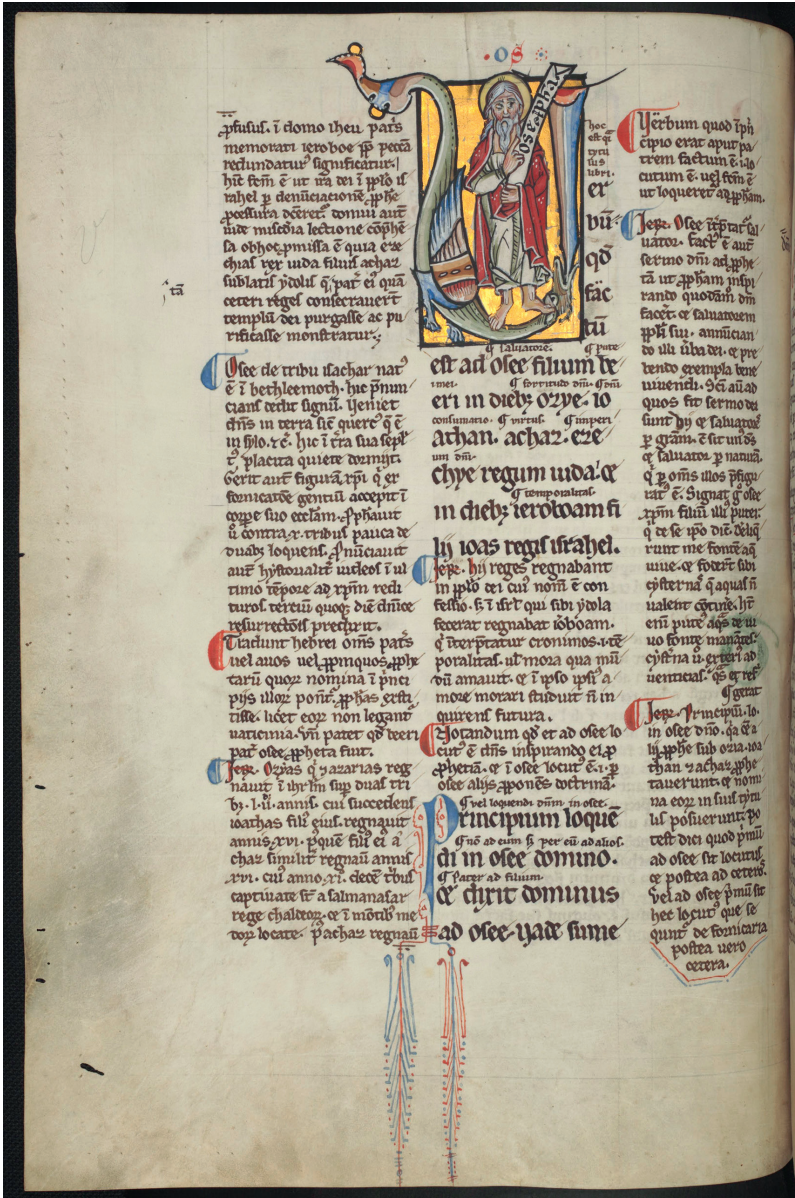 · OS
ꝓfusus. ī domo iheu patˢ
memorati ieroboe ꝑꝑ peccā
redundatur̉ significatur̉.
hūc ē ut ira dei ī pꝑlo is
rahel ꝑ denūciacionē
uide lectione
sa obhoc ꝓmissa ē quia eze
chias rex iuda filius achaz
sublatis ydolis ei᾽ quā
ceteri reges consecrauerūt
templū dei purgasse ac pu
rificasse monstratur.
tā
Osee de tribu isachar nat᾽
ē ī bethleemoth. hic p̄nun
cians dedit signū. Veniet
dn̄s in terra
in sylo. hic ī tr̄a sua sepl᾽
t᾽ placita quiete dormiit.
Gerit aut̄ figurā xp̄i q̉ ex
fornicatōe gentiū accepit ī
corpe suo eccl̄am. ꝓphauit
ū contra x. tribus pauca de
duabꝫ loquens. p̄nūciauit
aut̄ iudeos ī ul
timo tēpore ad xp̄m redi
turos
resurrectōis
Tradunt hebrei om̄s patˢ
uel auos uel ꝓpinquos ꝓph
tarū quoꝝ nomina ī p̄nci
pijs illoꝝ ꝓphas exsti
tisse. licet eoꝝ non legant᾽
uaticinia. Vn̄ patet qd̄ beeri
pat᾽ osee ꝓpheta fuit.
Jeꝝ. Ozyas q̉ ⁊ azarias reg
nauit ī ihrl̄m sup duas tri
bꝫ. l. ii. annis. cui succedens
ioathas fili᾽ eius. regnauit
annis xvi. pꝰquē fili᾽ ei᾽ a
chaz similit̄ regnau᾽ annis
.xvi. cui᾽ anno. xi. decē tˢb᾽
captiuate st̄ a salmanasar
rege chaldeoꝝ. ⁊ ī mōtibꝫ me
doꝝ locate. pꝰ achaz regnau᾽
osee ꝓpha
hoc
est q̉
tytu
lus
libri.
er
bū·
qd̄
fac
tū
¶ saluatore. ¶ pute
est ad osee filium be
i mei. ¶ fortitudo dn̄i. ¶ dn̄i
eri in diebꝫ ozye. io
consumatio. ¶ virtus. ¶ imperi
athan. achaz. eze
um dn̄i.
chye regum iuda. ⁊
¶ temporalitas
in diebꝫ ieroboam fi
lij ioas regis israhel.
Jeꝝ. hij reges regnabant
in pꝑlo dei cui᾽ nom̄ ē con
fessio. ⁊ ī isrl̄ qui sibi ydola
fecerat regnabat ioboam.
q̉ īterptatur cronimos. i. tē
poralitas. ul̄ mora qua mū
dū amauit. ⁊ ī ipso ipsi᾽ a
more morari studuit n̄ in
quirens futura.
Notandum qd̄ et ad osee lo
cut᾽ ē dn̄s inspirando ei ꝓ
phetiā. ⁊ ī osee locut᾽ ē. i. ꝑ
osee alijs ꝓponēs doctrinā.
¶ vel loquendi dn̄m in osee.
Principium loquē
¶ nō ad eum ꝫ per eū ad alios.
di in osee domino.
¶ pater ad filium.
⁊ dixit dominus
ad osee. Uade sume
Verbum quod ī p̄n
cipio erat aput pa
trem factum ē. i. lo
cutum ē. uel
ut loqueret᾽ ad ꝓpham.
Jeꝝ. Osee īt̄ptat᾽ sal
uator. fact᾽ ē aut̄
sermo dn̄i ad ꝓphe
tā ut ꝓpham inspi
rando quodāmō dn̄m
facēt. ⁊ saluatorem
pꝑli sui. annūcian
do illi ūba dei. ⁊ pre
bendo exempla bene
uiuendi. Scī aū ad
quos fit sermo dei
sunt dij ⁊ saluatoˢ
ꝑ grām. ⁊ sit un᾽ d᾽s
⁊ saluator ꝑ naturā.
q̉ ꝑ om̄s illos p̄figu
rat᾽ ē. Signat g̊ osee
xp̄m filiū illi᾽ putei.
q̉ de se ip̄o dic̄. Deliq̄
runt me fontē aq̄
uiue. ⁊ foder̄t sibi
cysternas q̄ aquas n̄
ualent cōtine̅. ht̄
enī pute᾽ aq̄s de ui
uo fonte manātes.
cyst̄na ū. exteri᾽ ad
uenticias.
¶ gerat
Jeꝝ. Principiū. lo.
in osee dn̄o. q̉a ⁊ a
lij ꝓphe sub ozia. ioa
than ⁊ achaz ꝓphe
tauerunt. ⁊ nomi
na eoꝝ in suis tytu
lis posuerunt. po
test dici quod p̄mū
ad osee sit locutus.
⁊ postea ad ceteros.
Vel ad osee p̄mū sit
hec locut᾽ que se
qunt᾽ de fornicaria
postea uero
cetera.